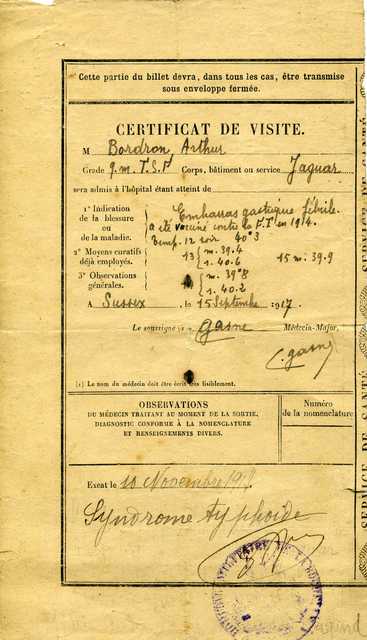 Cette partie du billet devra, dans tous les cas, être transmise
sous enveloppe fermée.
CERTIFICAT DE VISITE.
M Bordron Arthur
Grade q.m. T.S.F Corps, bâtiment ou service Jaguar
sera admis à l'hôpital étant atteint de
1° Indication
de la blessure
ou
de la maladie.
Embarras gastrique fébrile.
a été vacciné contre la F.T. en 1914.
Temp. 12 soir 40°3
2° Moyens curatifs
déjà employés.
13 { m. 39.4
s. 40.6
15 m. 39.9
3° Observations
générales.
m. 39°8
s. 40.2
A Sussex, le 15 Septembre 1917
Le soussigné (1) Gasne Médecin-Major,
C. Gasne
(1) Le nom du médecin doit être écrit très lisiblement.
OBSERVATIONS
DU MÉDECIN TRAITANT AU MOMENT DE LA SORTIE,
DIAGNOSTIC CONFORME À LA NOMENCLATURE
ET RENSEIGNEMENTS DIVERS.
Numéro
de la nomenclature
Exeat le 10 Novembre 191
Syndrome typhoïde